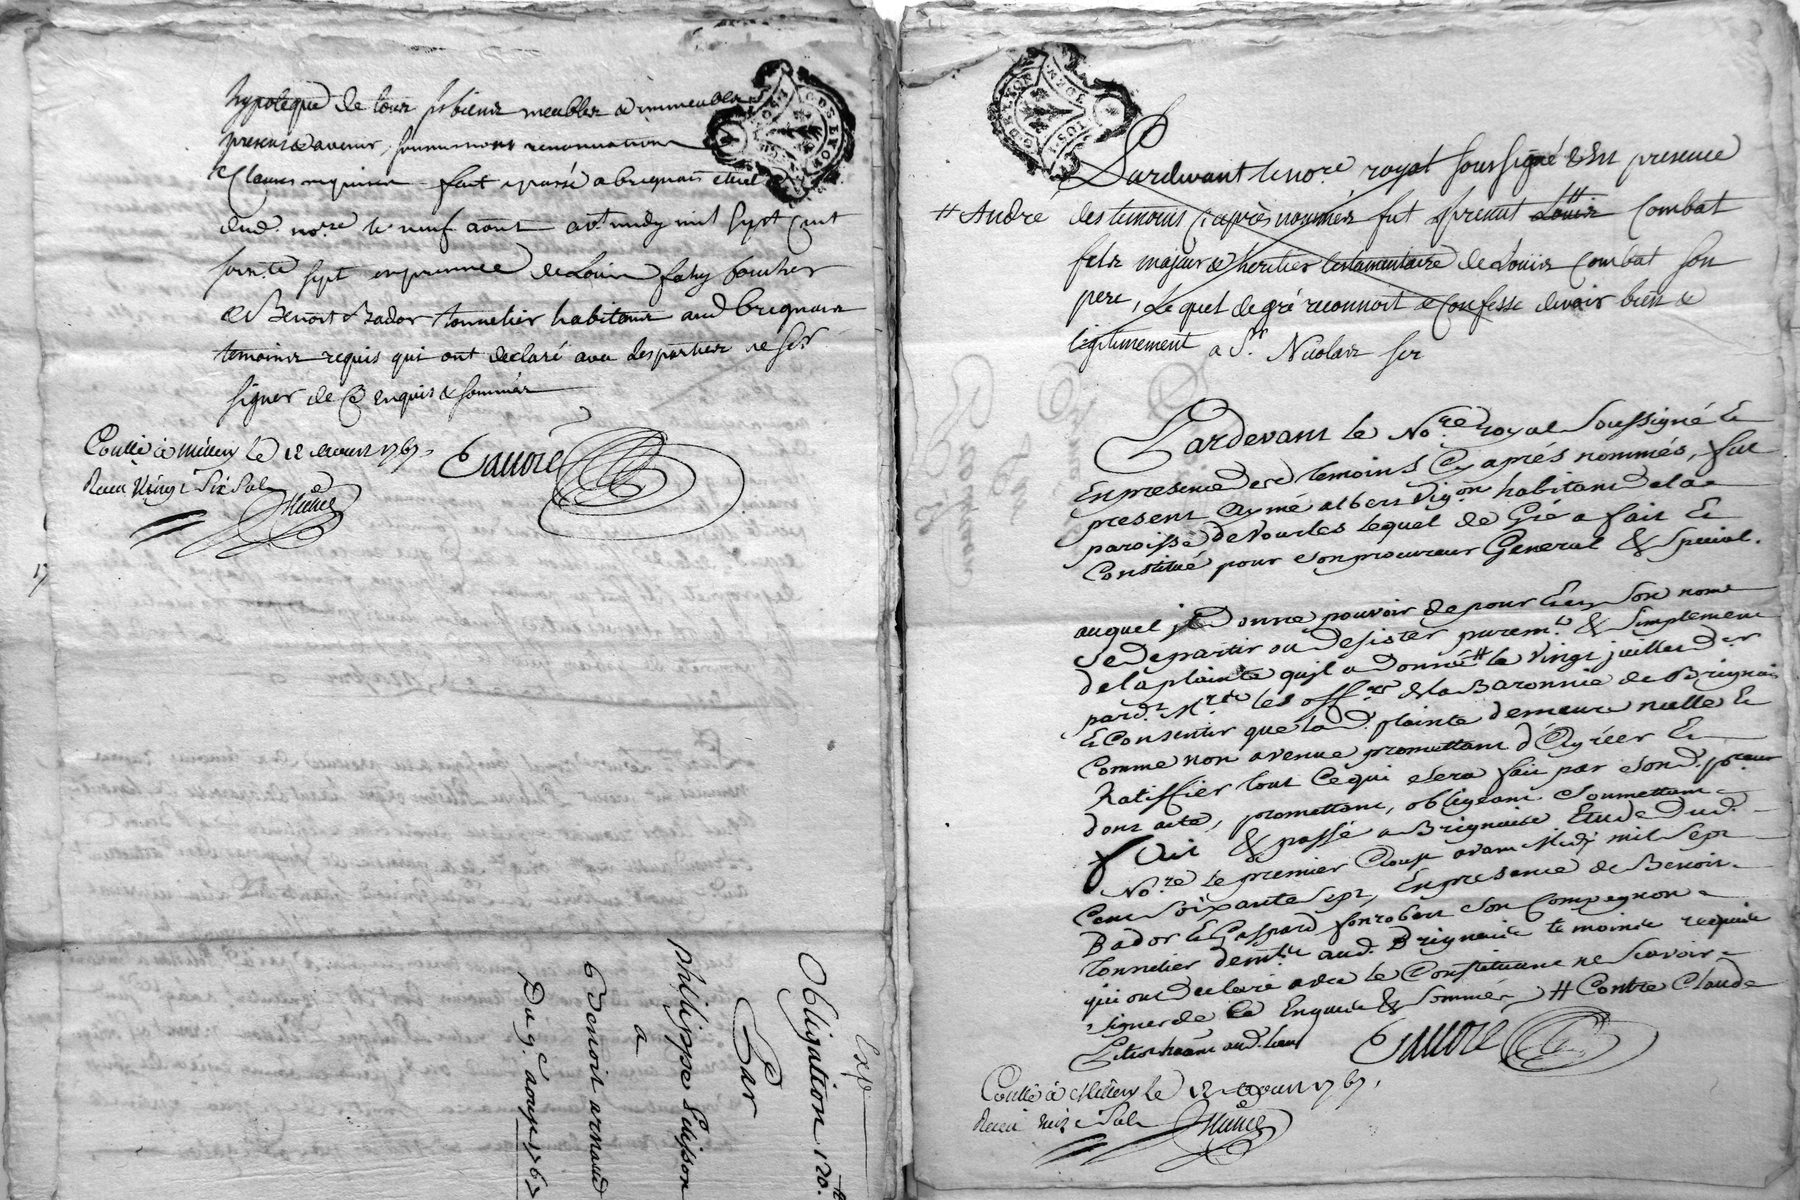 hypoteque de tous ses biens meubles & immeubles
presens & avenir, soumissions renonciations
Clauses requises fait & passé a brignais etude
dud. no.re le neuf aout av.t midy mil sept cent
soix.te sept en presence de Louis fahy boucher
& Benoit Bador tonnelier habitans aud brignais
temoins requis qui ont declaré avec les parties ne sç.r
signer de ce enquis & sommés
Collé à Millery le 12 aout 1767.
Receu Vingt Six Sols
Exp
Obligation 120.#
Par
philippe
a
Benoit arnaud
Du 9.e aoust 1767
Pardevant le no.re royal soussigné & en presence
des temoins cy après nommés fut present Louis Combat
# André
fils majeur & heritier testamentaire de Louis Combat son
pere, Lequel de gré reconnoit & confesse devoir bien &
légitimement a S.r Nicolas
Pardevant le No.re royal Soussigné &
En presence des temoins Cy aprés nommés, fut
present Aymé albert vigon habitant de la
paroisse de Vourles lequel de Gré a fait &
Constitué pour son procureur General & Special.
auquel il Donne pouvoir de pour & en Son nom
se departir ou desister purem.t & Simplement
de la plainte quil a donnée # le vingt juillet d.r
pard.t M.rs les off.rs de la Baronnie de Brignais
& Consentir que la d. plainte demeure nulle &
Comme non avenue promettant d'Agréer &
Ratiffier tout Ce qui sera fait par son d. pro.cureur
dont acte, promettant, obligeant Soumettant
Fait & passé a Brignais Etude dud.
No.re Le premier Aoust avant Midy mil Sept
Cent Soixante Sept, En presence de Benoit
Bador & Gaspard son Compagnon
tonnelier dem.t aud. Brignais temoins requis
qui ont declaré avec le Constituant ne Scavoir
signer de Ce Enquis & Sommés # Contre Claude
aud. lieu
Collé à Millery le 12 aout 1767.
Receu Sols